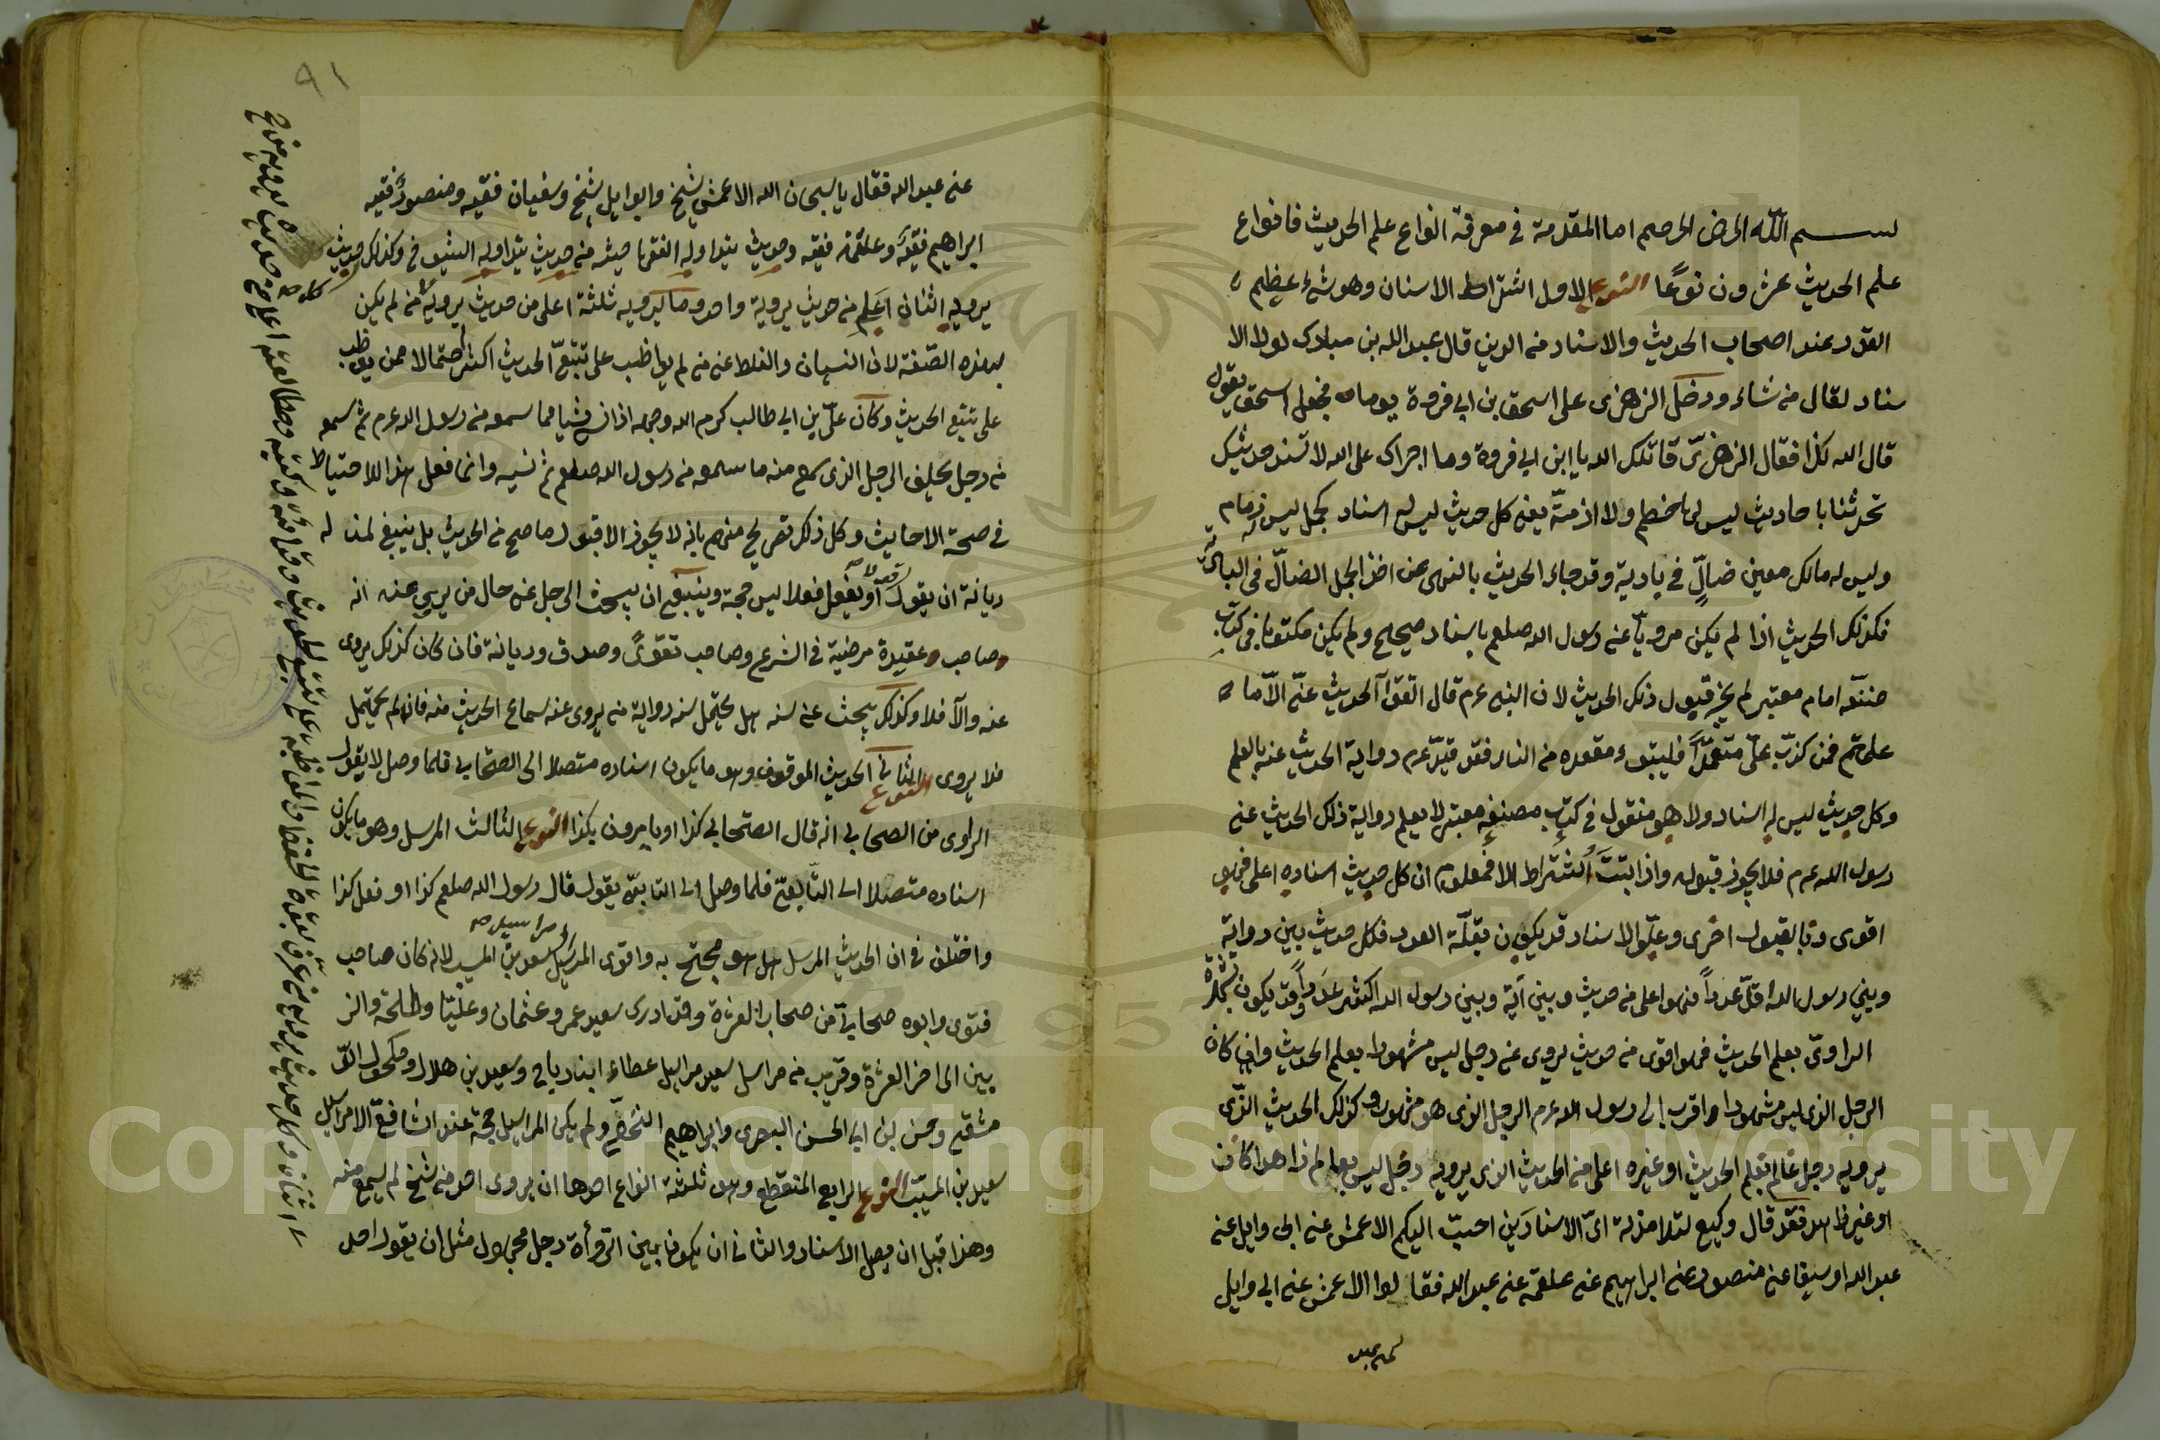 بسم الله الرحمن الرحيم اما المقدمة في معرفة انواع علم الحديث فانواع
علم الحديث عشرون نوعًا النوع الاول اشتراط الاسناد وهو شئ عظيم
القدر عند اصحاب الحديث والاسناد من الدين قال عبد الله بن مبارك لولا الا
سناد لقال من شاء ودخل الزهرى على اسحق بن ابي فروة يوما فجعل اسحق يقول
قال الله كذا فقال الزهرىّ قاتلك الله يا ابن ابي فروة وما اجراك على الله لا تسند حديثك
تحدثنا باحاديث ليس لها خطم ولا ازمّة يعني كل حديث ليس له اسناد كجمل ليس له زمام
وليس له مالك معين ضالّ في بادية وقد جاء الحديث بالنهى عن اخذ الجمل الضالّ فى البادية
فكذلك الحديث اذا لم يكن مرويّا عن رسول الله صلعم باسناد صحيح ولم يكن مكتوبا فى كتاب
صنّفه امام معتبر لم يجز قبول ذلك الحديث لان النبي عم قال اتقوا الحديث عنّى الّا ما
علمتم فمن كذب علىّ متعمّدًا فليتبوء مقعده من النار فقد قيّد عم رواية الحديث عنه بالعلم
وكل حديث ليس له اسناد ولا هو منقول في كتاب مصنفه معتبر لا يعلم رواية ذلك الحديث عن
رسول الله عم فلا يجوز قبوله واذا ثبتت اشتراط الا فمعلوم ان كل حديث اسناده اعلى فهو
اقوى وبالقبول احرى وعلوّ الاسناد قد يكون بقلّة العدد فكل حديث بين رواية
وبين رسول الله اقلّ عدداً فهو اعلى من حديث وبين آية وبين رسول الله اكثر عدداً وقد يكون بكثرة
الراوىّ بعلم الحديث فهو اقوى من حديث يروى عن رجل ليس مشهورا بعلم الحديث وان كان
الرجل الذى ليس مشهورا اقرب الى رسول الله عم الرجل الذى هو مشهور وكذلك الحديث الذّى
يرويه رجل عالم بعلم الحديث او غيره اعلى من الحديث الذى يرويه رجل ليس بعالم زاهدا كان
او غير زاهد فقد قال وكيع لتلامذته اىّ الاسنادين احبّ اليكم الاعمش عن ابى وايل عن
عبد الله او سفيان عن منصور عن ابراهيم عن علقمة عن عبد الله فقالوا الاعمش عن ابي وايل
عن عبد
٩١
عن عبد الله فقال يا سبحان الله الاعمش شيخ وابو وايل شيخ وسفيان فقيه ومنصور فقيه
ابراهيم فقيه وعلقمة فقيه وحديث يتداوله الفقهاء خير من حديث يتداوله الشيوخ وكذلك حديث
يرويه اثنان اعلم من حديث يرويه واحد وما يرويه ثلثة اعلى من حديث يرويه من لم يكن
بهذه الصّفة لان النسيان والغلط عن من لم يواظب على تتبّع الحديث اكثر احتمالا ممن يواظب
على تتبع الحديث وكان علىّ بن ابي طالب كرم الله وجهه اذا نسي شيئا مما سمعه من رسول الله عم ثم سمع
من رجل يحلف الرجل الذى سمع منه ما سمعه من رسول الله صلعم ثم نسيه وانما فعل هذا للاحتياط
في صحة الاحاديث وكل ذلك تصريح منهم بانه لا يجوز الا قبول ما صح من الحديث بل ينبغي لمن له
ديانة ان يقول او يفعل فعلا ليس حجة وينبغي ان يبحث الرجل عن حال من يروي عنه انه
صاحب عقيدة مرضية في الشرع وصاحب تقوىً وصدق وديانة فان كان كذلك يروى
عنه والّا فلا وكذلك يبحث عن سنه هل يحتمل سنه رواية من يروى عنه سماع الحديث منه فان لم يحتمل
فلا يروى النوع الثاني الحديث الموقوف وهو ما يكون اسناده متصلا الى الصحابي فلما وصل لا يقول
الراوى من الصحابي انه قال الصّحابي كذا او يامرون بكذا النوع الثالث المرسل وهو ما يكون
اسناده متصلا الى التّابعىّ فلما وصل الى التابعىّ يقول قال رسول الله صلعم كذا او فعل كذا
واختلف في ان الحديث المرسل هل هو محتج به واقوى المراسيل مراسيل سعيد بن المسيب لانه كان صاحب
فتوى وابوه صحابيّ من صحاب العشرة وقد ادرى سعيد عمر وعثمان وعليّا وطلحة والز
بين الى اخر العشرة وقريب من مراسل سعيد مراسيل عطاء ابن ابي رباح وسعيد بن هلال ومكحول الدّ
مشقي وحسن بن ابي الحسن البصرى وابراهيم النخعيّ ولم يكن المراسيل حجة عند الشافعىّ الا مراسيل
سعيد بن المسيّب النوع الرابع المنقطع وهو ثلثة انواع احدها ان يروى احد من شيخ لم يسمع منه
وهذا قبل ان يصل الاسناد والثاني ان يكون بين الرواة رجل مجهول مثل ان يقول احد